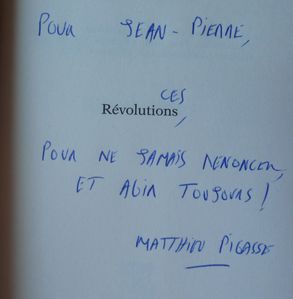 POUR JEAN-PIERRE,
CES
Révolutions,
POUR NE JAMAIS RENONCER,
ET AGIR TOUJOURS !
MATTHIEU PIGASSE